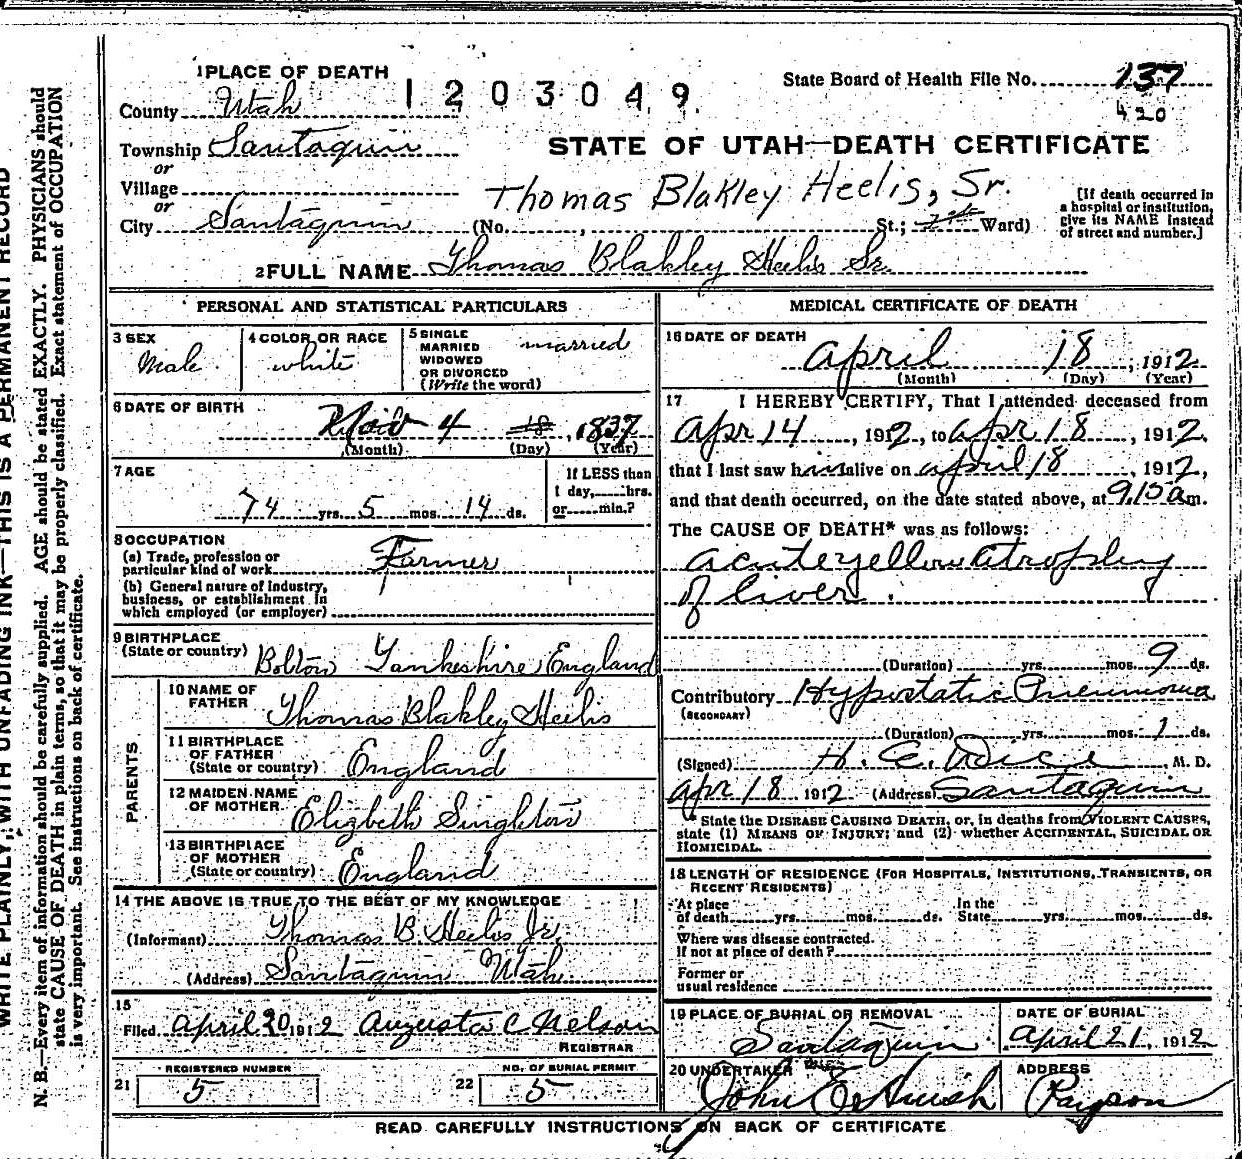 1 PLACE OF DEATH
1203049
State Board of Health File No. 137
420
County Utah
STATE OF UTAH—DEATH CERTIFICATE
Township Santaquin
or
Village
or
City Santaquin
Thomas Blakley Heelis, Sr.
(No. , St.; Ward)
[If death occurred in
a hospital or institution,
give its NAME instead
of street and number.]
2 FULL NAME Thomas Blakley Heelis Sr.
PERSONAL AND STATISTICAL PARTICULARS
3 SEX
Male
4 COLOR OR RACE
white
5 SINGLE
MARRIED
WIDOWED
OR DIVORCED
(Write the word)
married
6 DATE OF BIRTH
Nov 4 18, 1837
(Month) (Day) (Year)
7 AGE
74 yrs. 5 mos. 14 ds.
If LESS than
1 day, hrs.
or min.?
8 OCCUPATION
(a) Trade, profession or
particular kind of work Farmer
(b) General nature of industry,
business, or establishment in
which employed (or employer)
9 BIRTHPLACE
(State or country) Bolton Yankeshire, England
PARENTS
10 NAME OF
FATHER Thomas Blakley Heelis
11 BIRTHPLACE
OF FATHER
(State or country) England
12 MAIDEN NAME
OF MOTHER Elizbeth Singleton
13 BIRTHPLACE
OF MOTHER
(State or country) England
14 THE ABOVE IS TRUE TO THE BEST OF MY KNOWLEDGE
(Informant) Thomas B. Heelis Jr.
(Address) Santaquin Utah
15
Filed April 20 1912 Augusta C Nelson
REGISTRAR
REGISTERED NUMBER
21 5
NO. OF BURIAL PERMIT
22 5
MEDICAL CERTIFICATE OF DEATH
16 DATE OF DEATH
April 18, 1912
(Month) (Day) (Year)
17 I HEREBY CERTIFY, That I attended deceased from
Apr 14, 1912, to Apr 18, 1912,
that I last saw him alive on April 18, 1912,
and that death occurred, on the date stated above, at 9.15 a m.
The CAUSE OF DEATH* was as follows:
acute yellow atrophy
of liver.
(Duration) yrs. mos. 9 ds.
Contributory Hypostatic Pneumonia
(SECONDARY)
(Duration) yrs. mos. 1 ds.
(Signed) H. E. , M. D.
Apr 18 1912 (Address) Santaquin
*State the DISEASE CAUSING DEATH, or, in deaths from VIOLENT CAUSES,
state (1) MEANS OF INJURY; and (2) whether ACCIDENTAL, SUICIDAL OR
HOMICIDAL.
18 LENGTH OF RESIDENCE (FOR HOSPITALS, INSTITUTIONS, TRANSIENTS, OR
RECENT RESIDENTS)
At place
of death yrs. mos. ds.
In the
State yrs. mos. ds.
Where was disease contracted.
If not at place of death?
Former or
usual residence
19 PLACE OF BURIAL OR REMOVAL
Santaquin
DATE OF BURIAL
April 21, 1912
20 UNDERTAKER
John E Huish
ADDRESS
Payson
READ CAREFULLY INSTRUCTIONS ON BACK OF CERTIFICATE
WRITE PLAINLY, WITH UNFADING INK—THIS IS A PERMANENT RECORD
N. B.—Every item of information should be carefully supplied. AGE should be stated EXACTLY. PHYSICIANS should
state CAUSE OF DEATH in plain terms, so that it may be properly classified. Exact statement of OCCUPATION
is very important. See instructions on back of certificate.